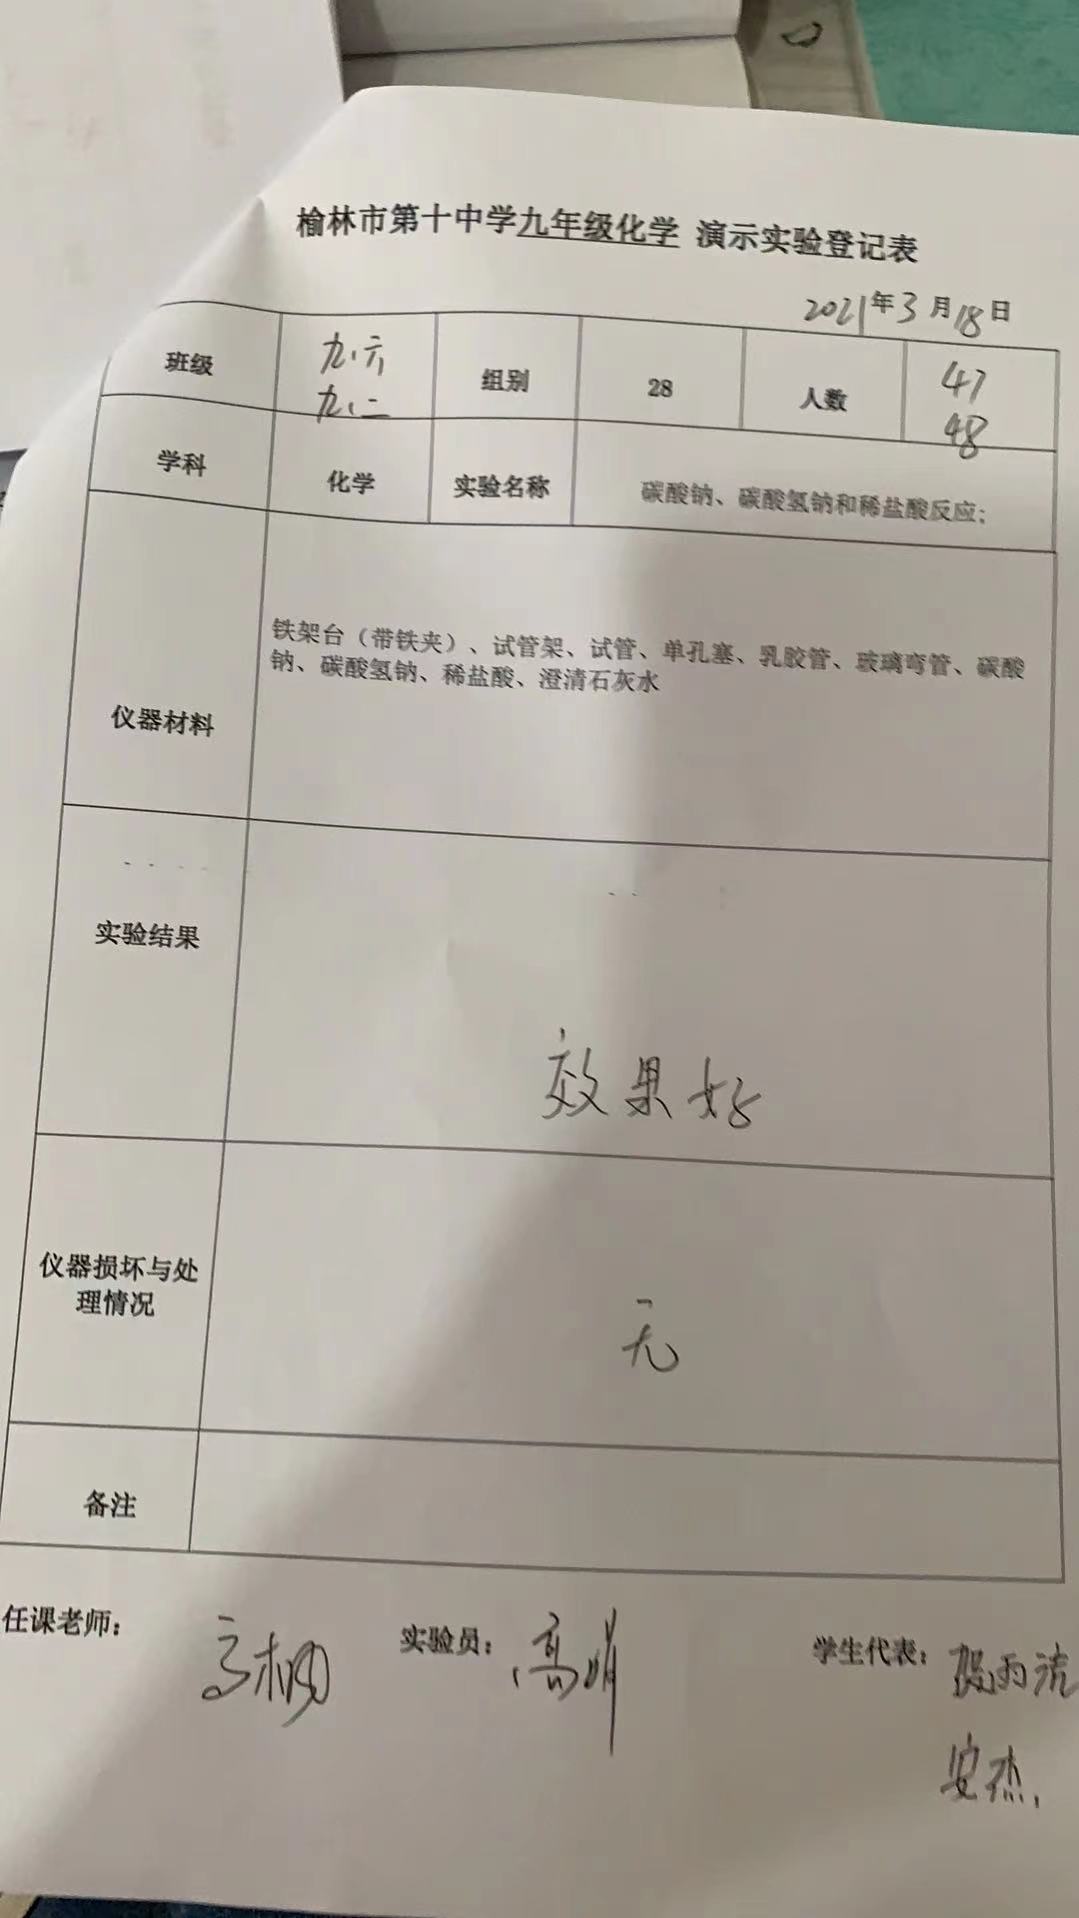 榆林市第十中学九年级化学 演示实验登记表
2021年3月18日
班级 九.六 组别 28 人数 47
九.二 48
学科 化学 实验名称 碳酸钠、碳酸氢钠和稀盐酸反应;
仪器材料
铁架台(带铁夹)、试管架、试管、单孔塞、乳胶管、玻璃弯管、碳酸
钠、碳酸氢钠、稀盐酸、澄清石灰水
实验结果
效果好
仪器损坏与处
理情况
无
备注
任课老师: 实验员: 高娟 学生代表:
安杰